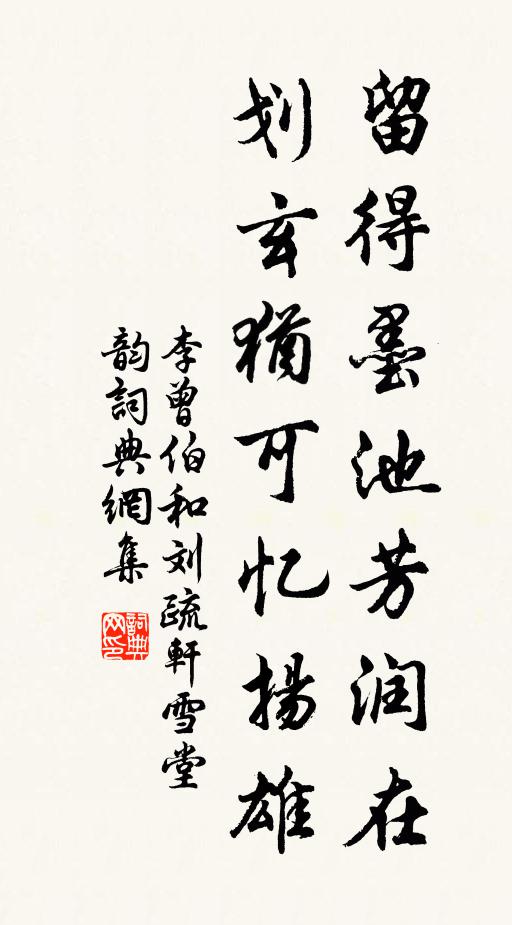 留得墨池芳润在
划玄犹可忆揚雄
李曾伯和刘疏軒雪堂
韵詞典網集
詞典
网印